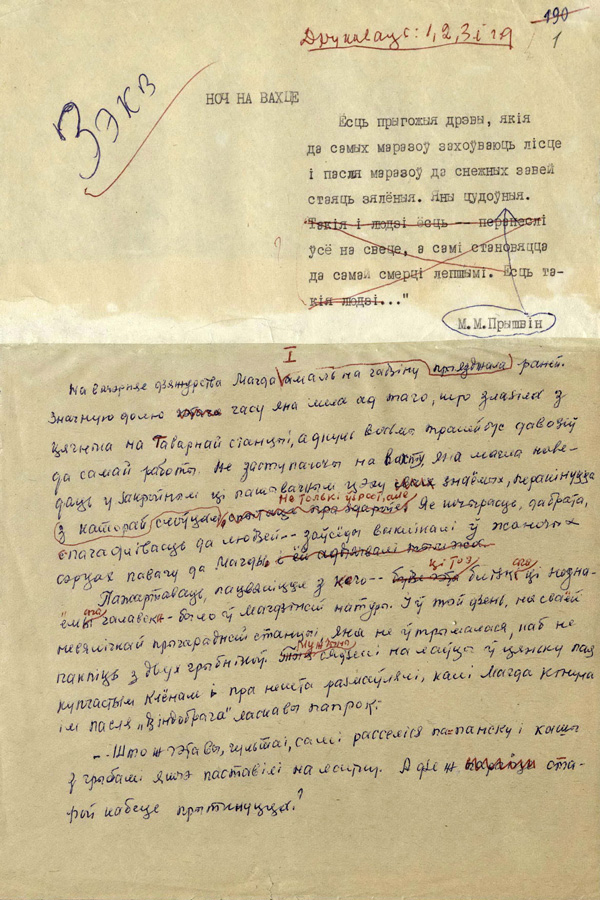 Друкаваць: 1, 2, 3 і гд
190
1
3 экз
НОЧ НА ВАХЦЕ
Ёсць прыгожыя дрэвы, якія
да самых маразоў захоўваюць лісце
і пасля маразоў да снежных завей
стаяць зялёныя. Яны цудоўныя.
Такія і людзі ёсць -- перанеслі
ўсё на свеце, а самі становяцца
да самай смерці лепшымі. Ёсць та-
кія людзі..."
М.М.Прышвін
I
На вячэрняе дзяжурства Магда амаль на гадзіну прыязджала раней.
Значную долю часу яна мела ад таго, што злазіла з
цягніка на Таварнай станцыі, адкуль восьмы тралейбус давозіў
да самай работы. Не заступаючы на вахту, яна магла наве-
даць у закройным ці пашывачным цэху знаёмых, перакінуцца
не толькі ўірэст, але
з каторай слоўцам пра здароўе. Яе шчырасць, дабрата,
спагадлівасць да людзей -- заўсёды выклікалі ў жаночых
сэрцах павагу да Магды
ці тое
Пажартаваць, пацвяліцца з каго -- блізкага ці незна-
ёмага чалавека - было ў Магдзінай натуры. І ў той дзень, на сваёй
невялічкай прыгараднай станцыі яна не ўтрымалася, каб не
пакпіць з двух грыбнікоў. Мужчыны сядзелі на лаўцы ў цяньку пад
купчастым клёнам і пра нешта размаўлялі, калі Магда кінула
ім пасля "дзіндобрага" ласкавы папрок:
-- Што ж гэта вы, гультаі, самі расселіся па-панску і кашы
з грыбамі яшчэ паставілі на лаўку. А дзе ж ста-
рой кабеце прытыкнуцца?